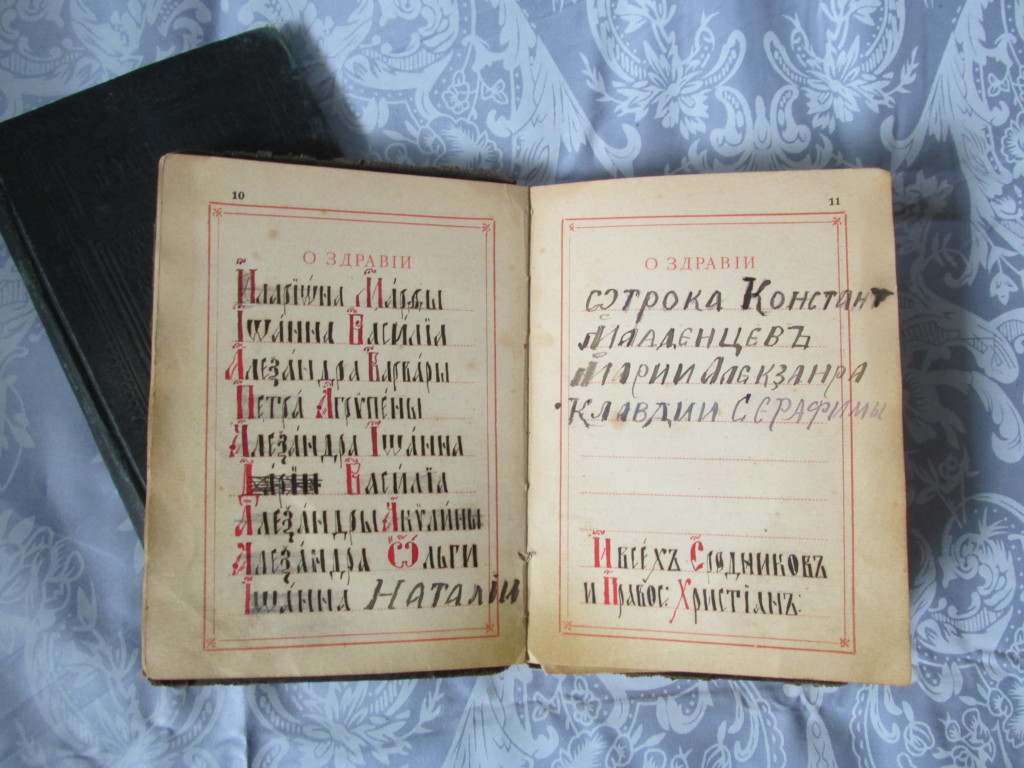 10
О ЗДРАВІИ
Иларіѡ́на Ма́рѳы
Іѡа́нна Васи́лїа
Алеѯа́ндра Варва́ры
Петра́ Агрѵпе́ны
Алеѯа́ндра Іѡа́нна
Васи́лїа
Алеѯа́ндры Акѵли́ны
Алеѯа́ндра Ѻ́льги
Іѡа́нна Наталіи
11
О ЗДРАВІИ
ѿрока Констант
Младенцевъ
Марии Алекзанра
Клавдии Серафимы
И все́хъ Сродниковъ
и Правос: Христіанъ: